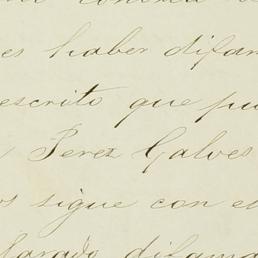 es haber difam
escrito que pu
Perez Galves
os sigue con el
larado difama